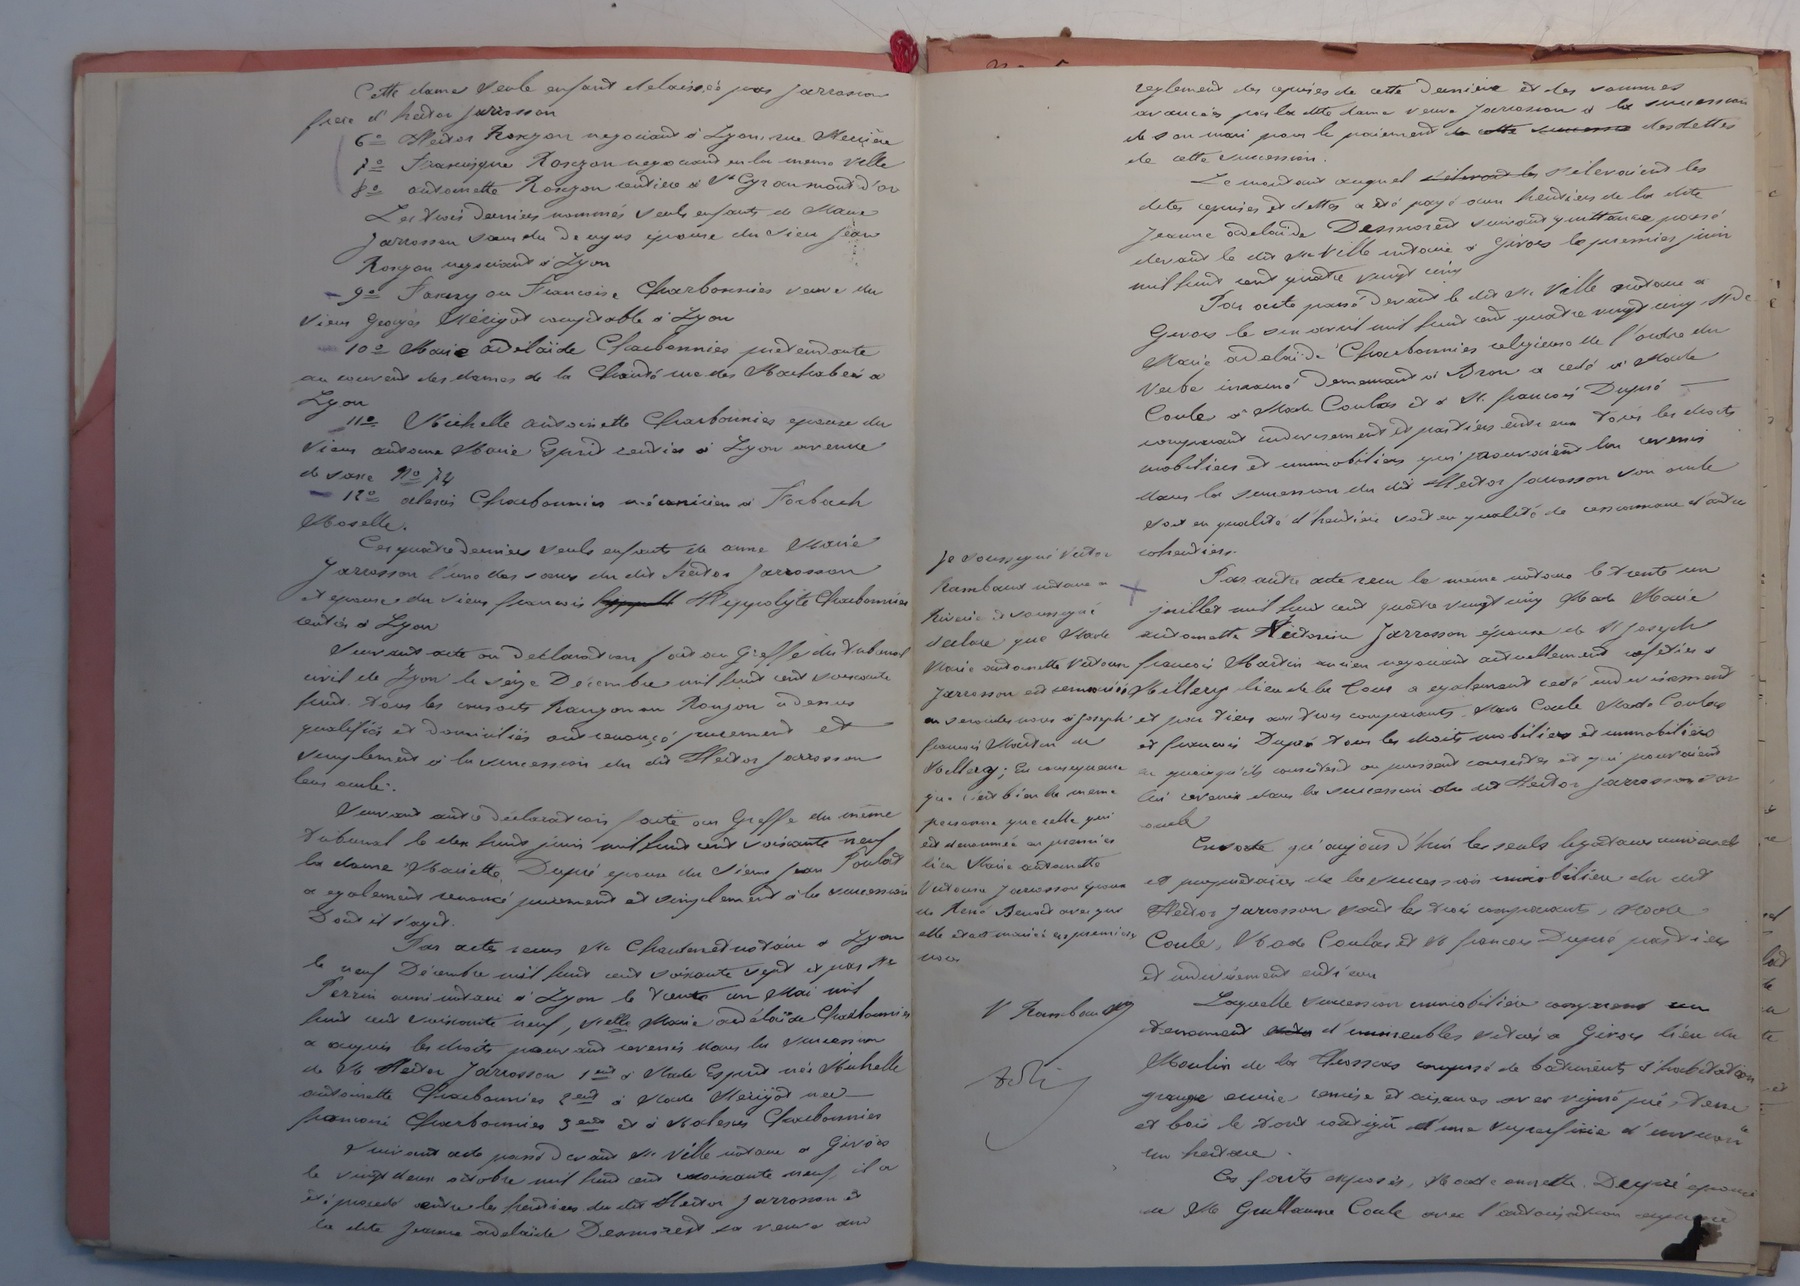 Cette dame seule enfant delaissée par Jarrosson
frère d'hector Jarrosson
6o Hector Ronzon negociant à Lyon rue Mercière
7o Francisque Ronzon negociant en la meme ville
8o antoinette Ronzon rentière à St Cyr au mont d'or
Les trois derniers nommés seuls enfants de Marie
Jarrosson sœur du de cujus épouse du sieur Jean
Ronzon negociant à Lyon
9o Fanny ou Françoise Charbonnier veuve du
sieur Georges Mérigot comptable à Lyon
10o Marie adélaïde Charbonnier pretendante
au couvent des dames de la Charité rue des Machabées à
Lyon
11o Michelle antoinette Charbonnier epouse du
sieur antoine Marie Esprit rentier à Lyon avenue
de saxe No 74
12o alexis Charbonnier mécanicien à Forbach
Moselle.
Ces quatre derniers seuls enfants de anne Marie
Jarrosson l'une des sœurs du dit hector Jarrosson
et epouse du sieur francois Hyppolyte Charbonnier
rentier à Lyon
Suivant acte ou déclaration fait au Greffe du tribunal
civil de Lyon le seize Décembre mil huit cent soixante
huit. tous les consorts Rangon ou Ronzon a dessus
qualifiés et domiciliés ont renoncé purement et
simplement à la succession du dit Hector Jarrosson
leur oncle.
Suivant autre déclaration faite au Greffe du même
tribunal le dix huit juin mil huit cent soixante neuf
la dame Mariette Dupré épouse du sieur Jean Coulas
a egalement renoncé purement et simplement à la succession
Dont il s'agit.
Par actes reçus Me Chardenet notaire à Lyon
le neuf Décembre mil huit cent soixante sept et par Me
Perrin aussi notaire à Lyon le trente un Mai mil
huit cent soixante neuf, Melle Marie adélaïde Charbonnier
a acquis les droits pouvant revenir dans la succession
de Mr Hector Jarrosson 1ent à Made Esprit née Michelle
antoinette Charbonnier 2ent à Made Mérigot née
francoise Charbonnier 3ent et à Mr alexis Charbonnier
Suivant acte passé devant Me Ville notaire à Givors
le vingt deux octobre mil huit cent soixante neuf, il a
été procedé entre les héritiers du dit Hector Jarrosson et
la dite Jeanne adelaïde Desmurest sa veuve au
reglement des reprises de cette dernière et des sommes
avancées par la dite dame veuve Jarrosson à la succession
de son mari pour le paiement de cette succession des dettes
de cette succession.
Le montant auquel s'élevant les s'élevaient les
dites reprises et dettes a été payé aux heritiers de la dite
Jeanne adelaïde Desmurest suivant quittance passé
devant le dit Me Ville notaire à Givors le premier juin
mil huit cent quatre vingt cinq
Par acte passé devant le dit Me Ville notaire à
Givors le six avril mil huit cent quatre vingt cinq, Mde
Marie adelaïde Charbonnier religieuse de l'ordre du
Verbe incarné demeurant à Bron a cédé à Made
Coule à Made Coulas et à Mr francois Dupré
comparant indivisement et par tiers entre eux tous les droits
mobiliers et immobiliers qui pouvaient lui revenir
dans la succession du dit Hector Jarrosson son oncle
soit en qualité d'heritière soit en qualité de cessionnaire d'autre
cohéritiers.
Par autre acte reçu le même notaire le trente un
juillet mil huit cent quatre vingt cinq Made Marie
antoinette Victorine Jarrosson épouse de Mr Joseph
francois Martin ancien negociant actuellement cafetier à
Millery lieu de la Cour a egalement cédé indivisement
et par tiers aux trois comparants, Made Coule Made Coulas
et francois Dupré tous les droits mobiliers et immobiliers
en quoi qu'ils consistent ou puissent consister et qui pouvaient
lui revenir dans la succession du dit Hector Jarrosson son
oncle
En sorte qu'aujourd'hui les seuls legataires universels
et proprietaires de la succession immobilière du dit
Hector Jarrosson sont les trois comparants, Made
Coule, Made Coulas et Mr francois Dupré par tiers
et indivisement entre eux
Laquelle succession immobilière comprend un
tenement d'immeubles situés à Givors lieu du
Moulin de la composé de bâtiments d'habitation
grange ecurie, remise et aisances avec vigne pré, terre
et bois le tout contigü d'une superficie d'environ
un hectare.
Ces faits exposés, Made annette Dupré epouse
de Mr Guillaume Coule avec l'autorisation expresse
Je soussigné Victor
Rambaud notaire à
Riverie et soussigné
declare que Made
Marie antoinette Victorine
Jarrosson est remariée
en secondes noces à Joseph
francois Martin de
Millery; En consequence
que c'est bien la meme
personne que celle qui
est denommée en premier
lieu Marie antoinette
Victorine Jarrosson épouse
de René Benoit avec qui
elle etait mariée en premières
noces
V Rambaud